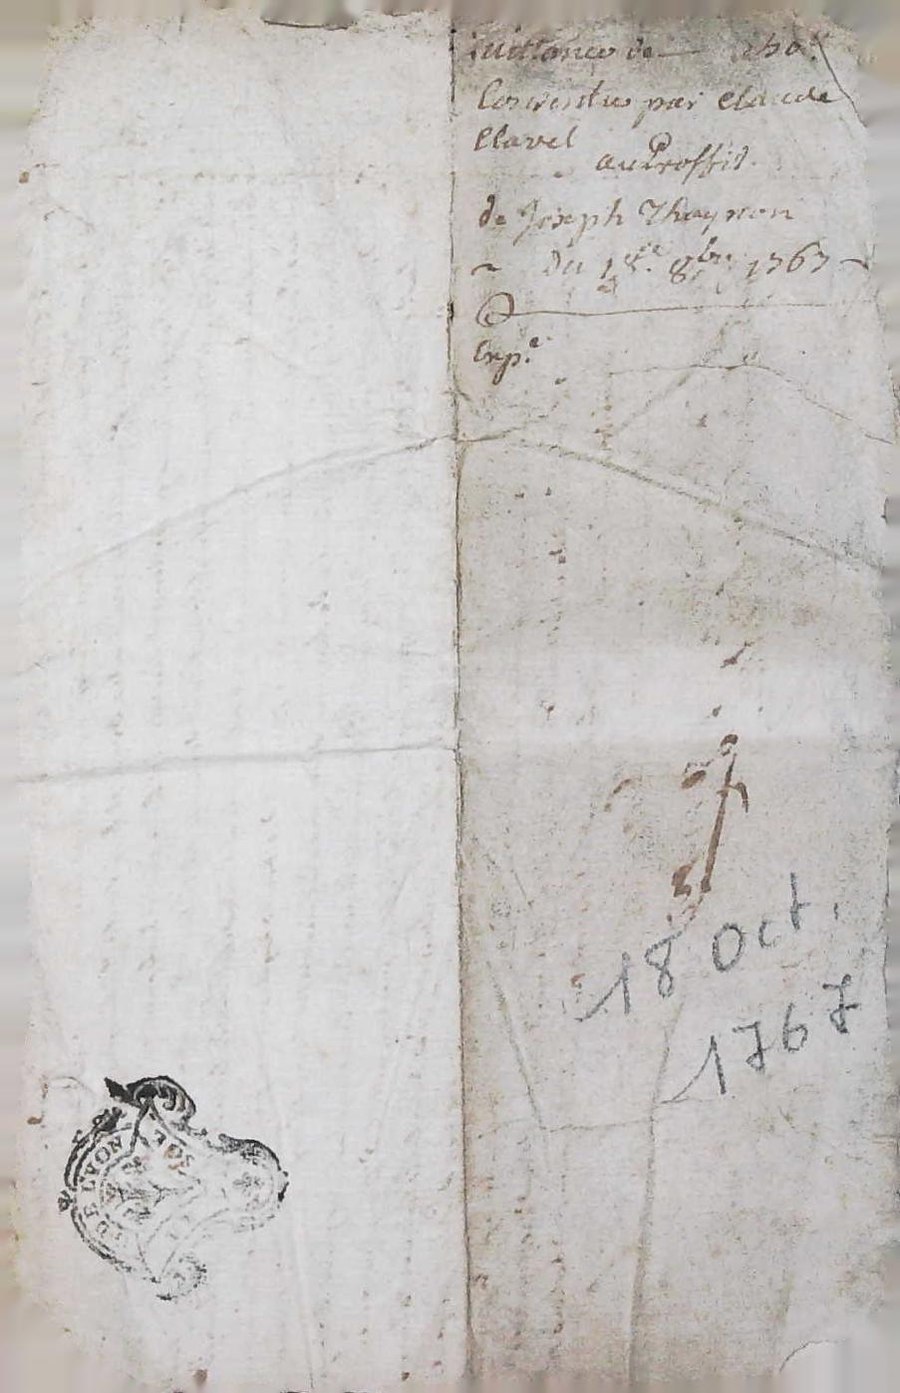 uittance de — 250ᵗᵗ
Consentue par Claude
Clavel
au Proffit
de Joseph Thaynon
~ du 18ᵉ 8bre 1767 ~
Expᵉ
18 Oct.
1767
DE LYON